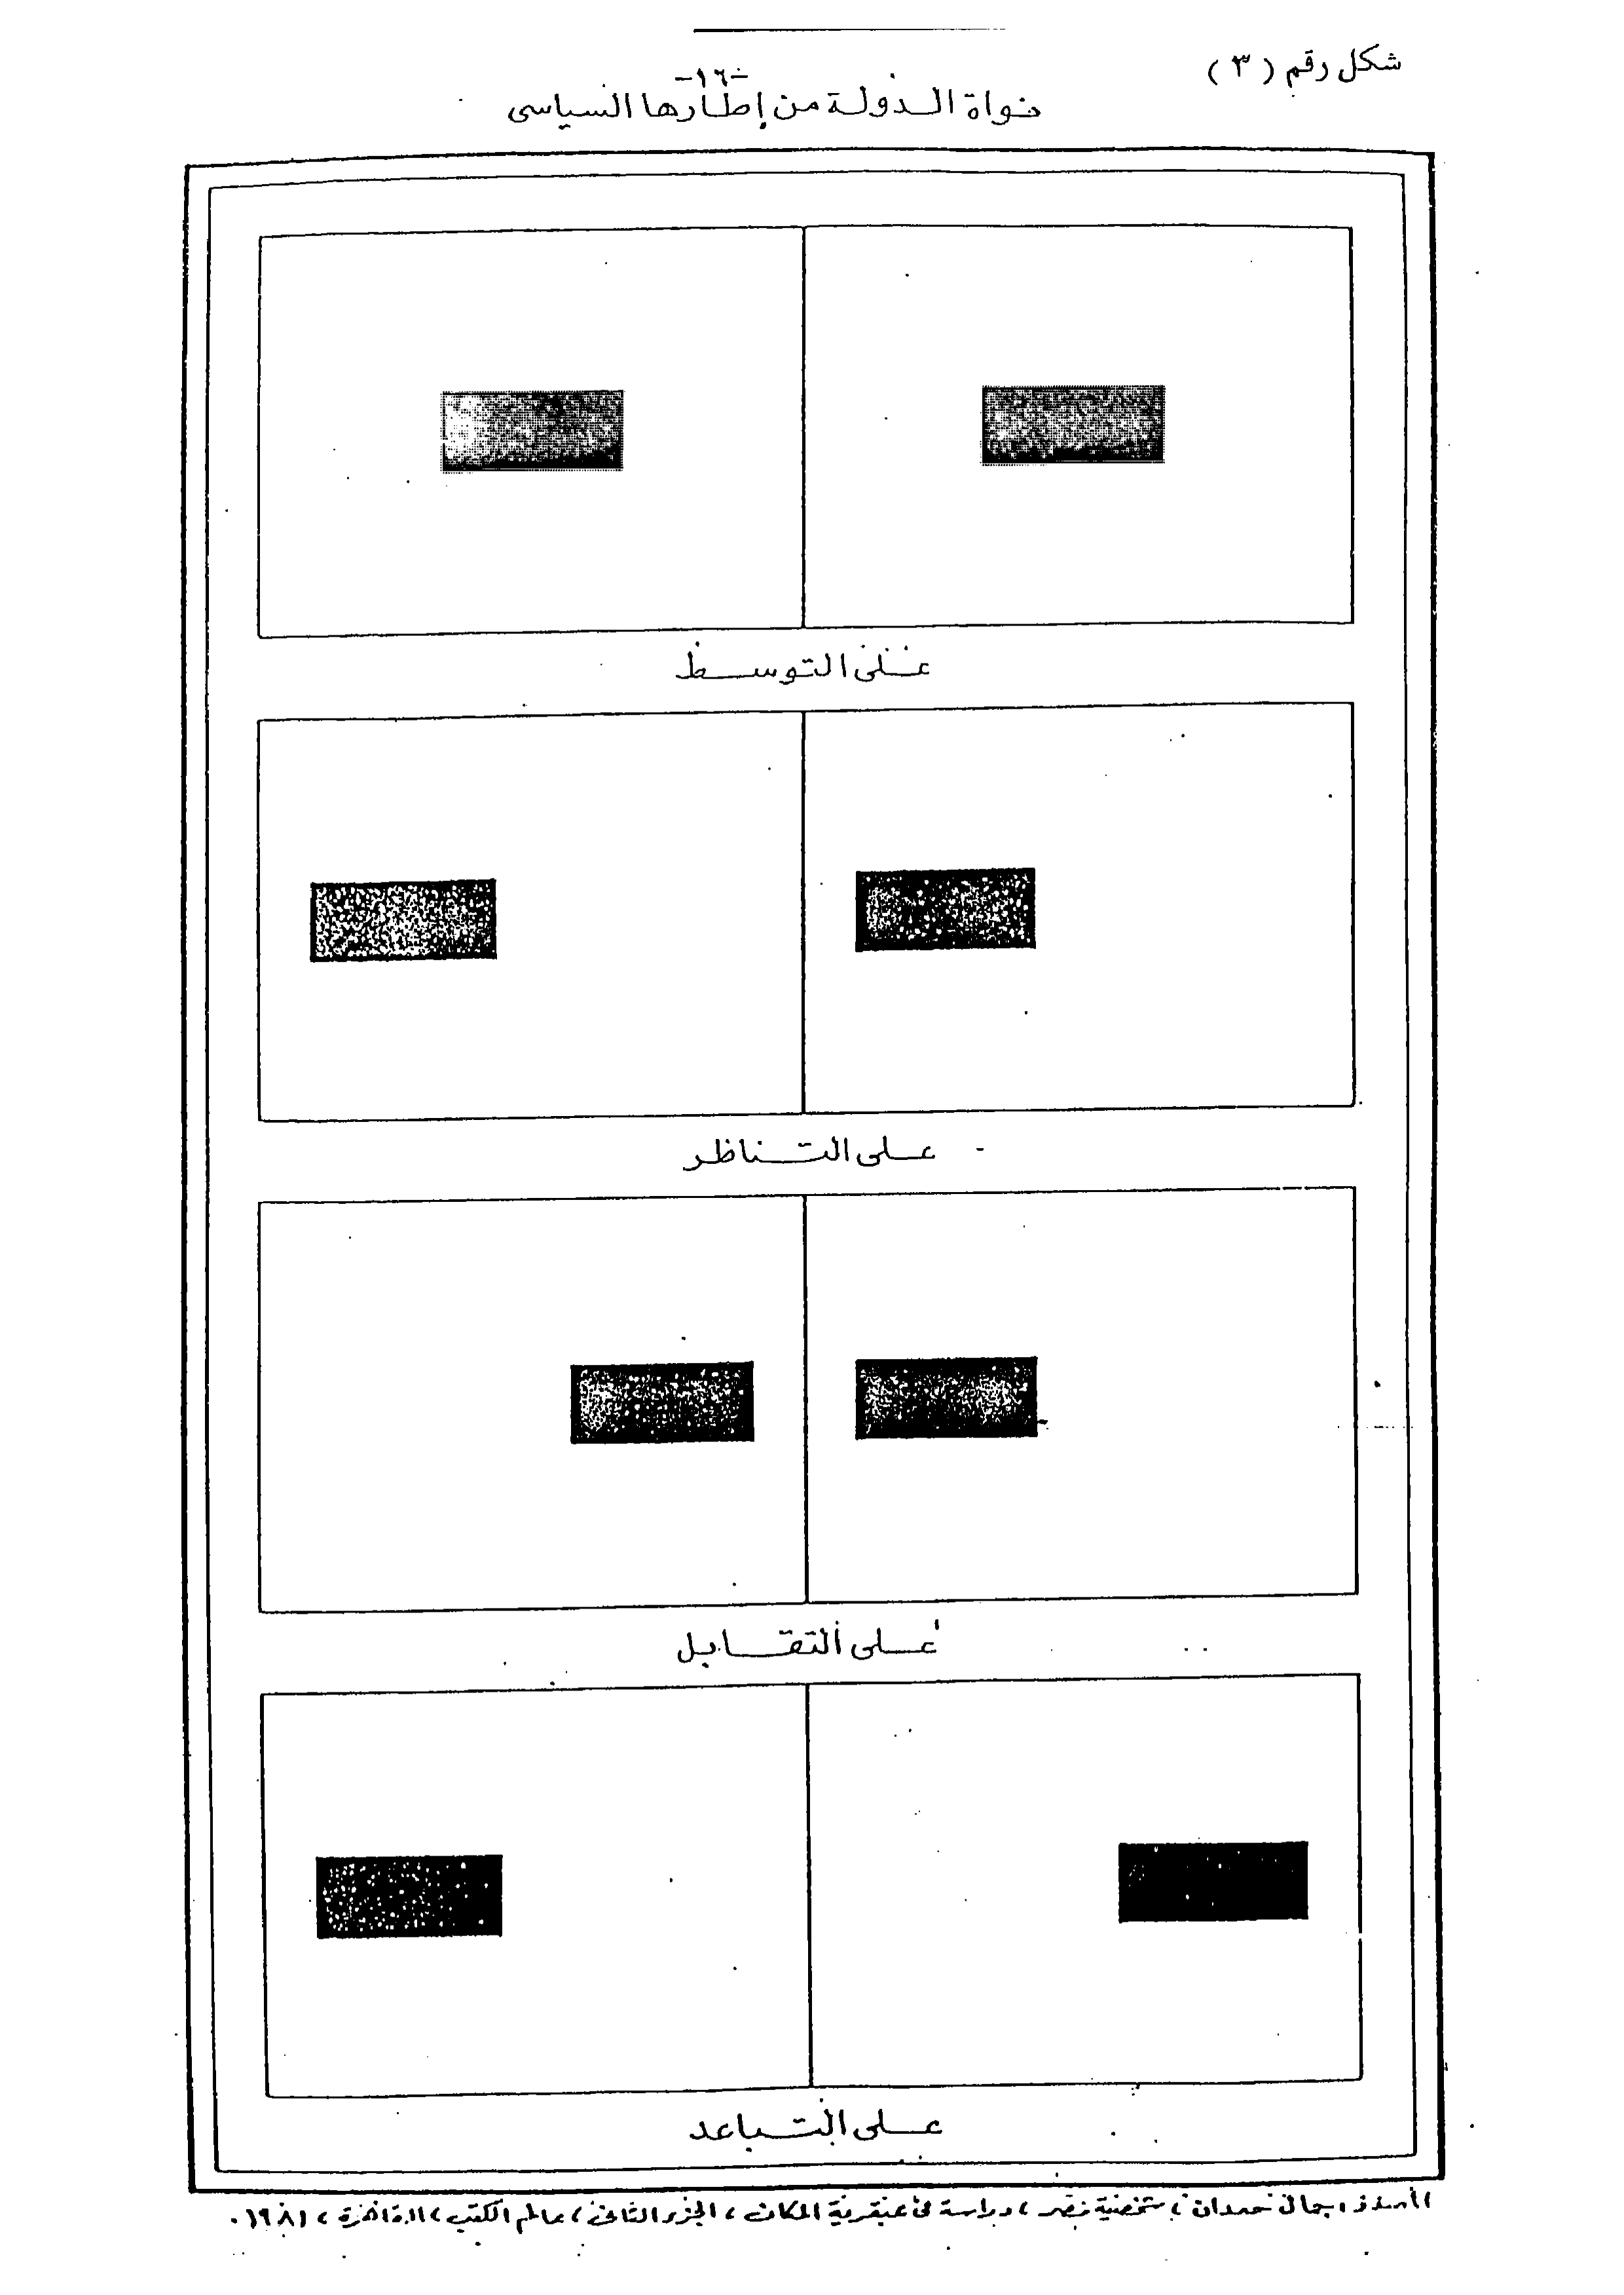 شكل رقم ( ٣ )
-١٦-
نواة الدولة من إطارها السياسى
على التوسط
على التناظر
على التقابل
على التباعد
المصدر : جمال حمدان ، شخصية مصر ، دراسة فى عبقرية المكان ، الجزء الثانى ، عالم الكتب ، القاهرة ، ١٩٨١ .